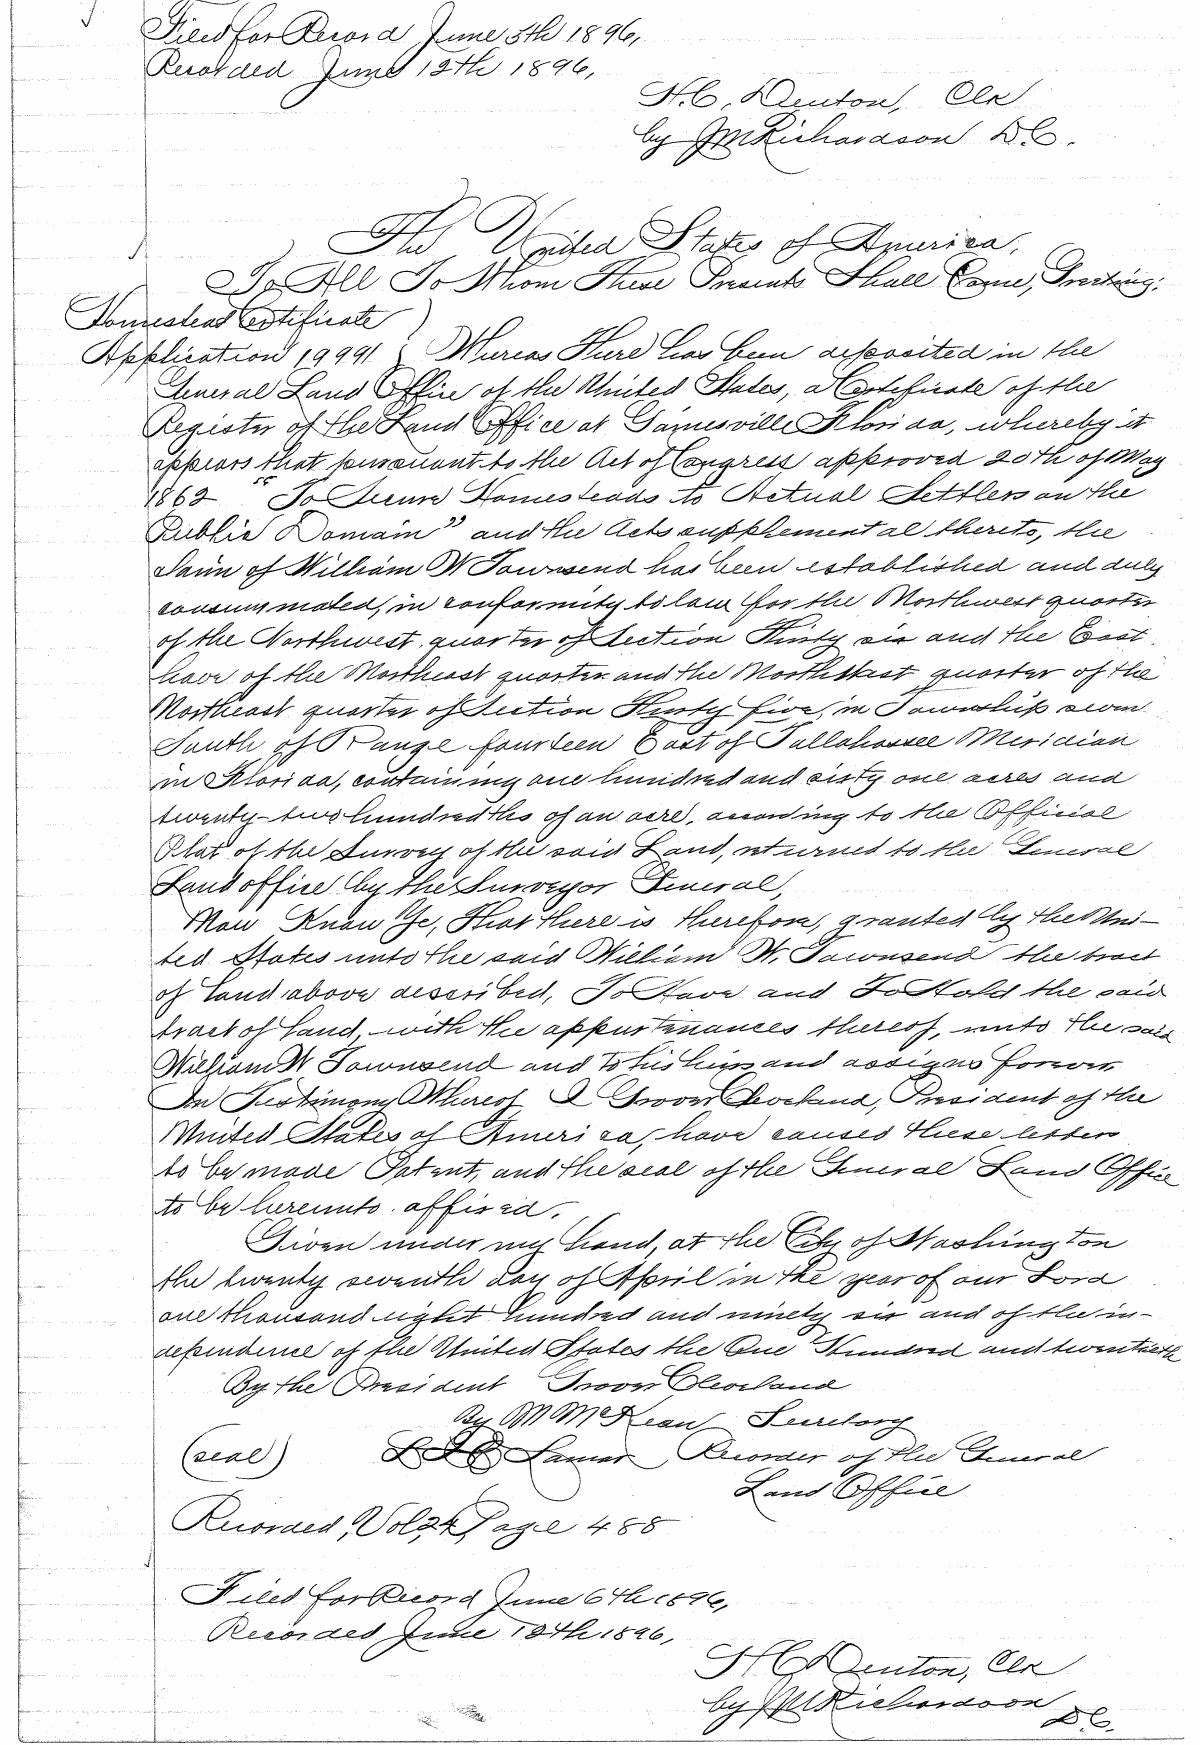 Filed for Record June 5th 1896,
Recorded June 12th 1896,
H.C. Denton, Clk
by JMRichardson D.C.
The United States of America,
To All To Whom These Presents Shall Come, Greeting:
Homestead Certificate
Application 19991 } Whereas There has been deposited in the
General Land Office of the United States, a Certificate of the
Register of the Land Office at Gainesville Florida, whereby it
appears that pursuant to the Act of Congress approved 20th of May
1862 "To Secure Homesteads to Actual Settlers on the
Public Domain" and the Acts supplemental thereto, the
claim of William W Townsend has been established and duly
consummated, in conformity to law for the Northwest quarter
of the Northwest quarter of Section Thirty six and the East
have of the Northeast quarter and the Northwest quarter of the
Northeast quarter of Section Thirty five, in Township seven
South of Range fourteen East of Tallahassee Meridian
in Florida, containing one hundred and sixty one acres and
twenty-two hundredths of an acre, according to the Official
Plat of the Survey of the said Land, returned to the General
Land office by the Surveyor General,
Now Know Ye, That there is therefore, granted by the Uni-
ted States unto the said William W. Townsend the tract
of Land above described, To Have and To Hold the said
tract of Land, with the appurtenances thereof, unto the said
William W Townsend and to his heirs and assigns forever
In Testimony Whereof I Grover Cleveland, President of the
United States of America, have causes these letters
to be made Patent, and the seal of the General Land Office
to be hereunto affixed.
Given under my hand, at the City of Washington
the twenty seventh day of April in the year of our Lord
one thousand eight hundred and ninety six and of the in-
dependence of the United States the One Hundred and twentieth
By the President Grover Cleveland
By M McKean Secretary
(seal) L Q C Lamar Recorder of the General
Land Office
Recorded, Vol. Page 488
Filed for Record June 6th 1896,
Recorded June 12th 1896,
H C Denton, Clk
by JMRichardson
D.C.